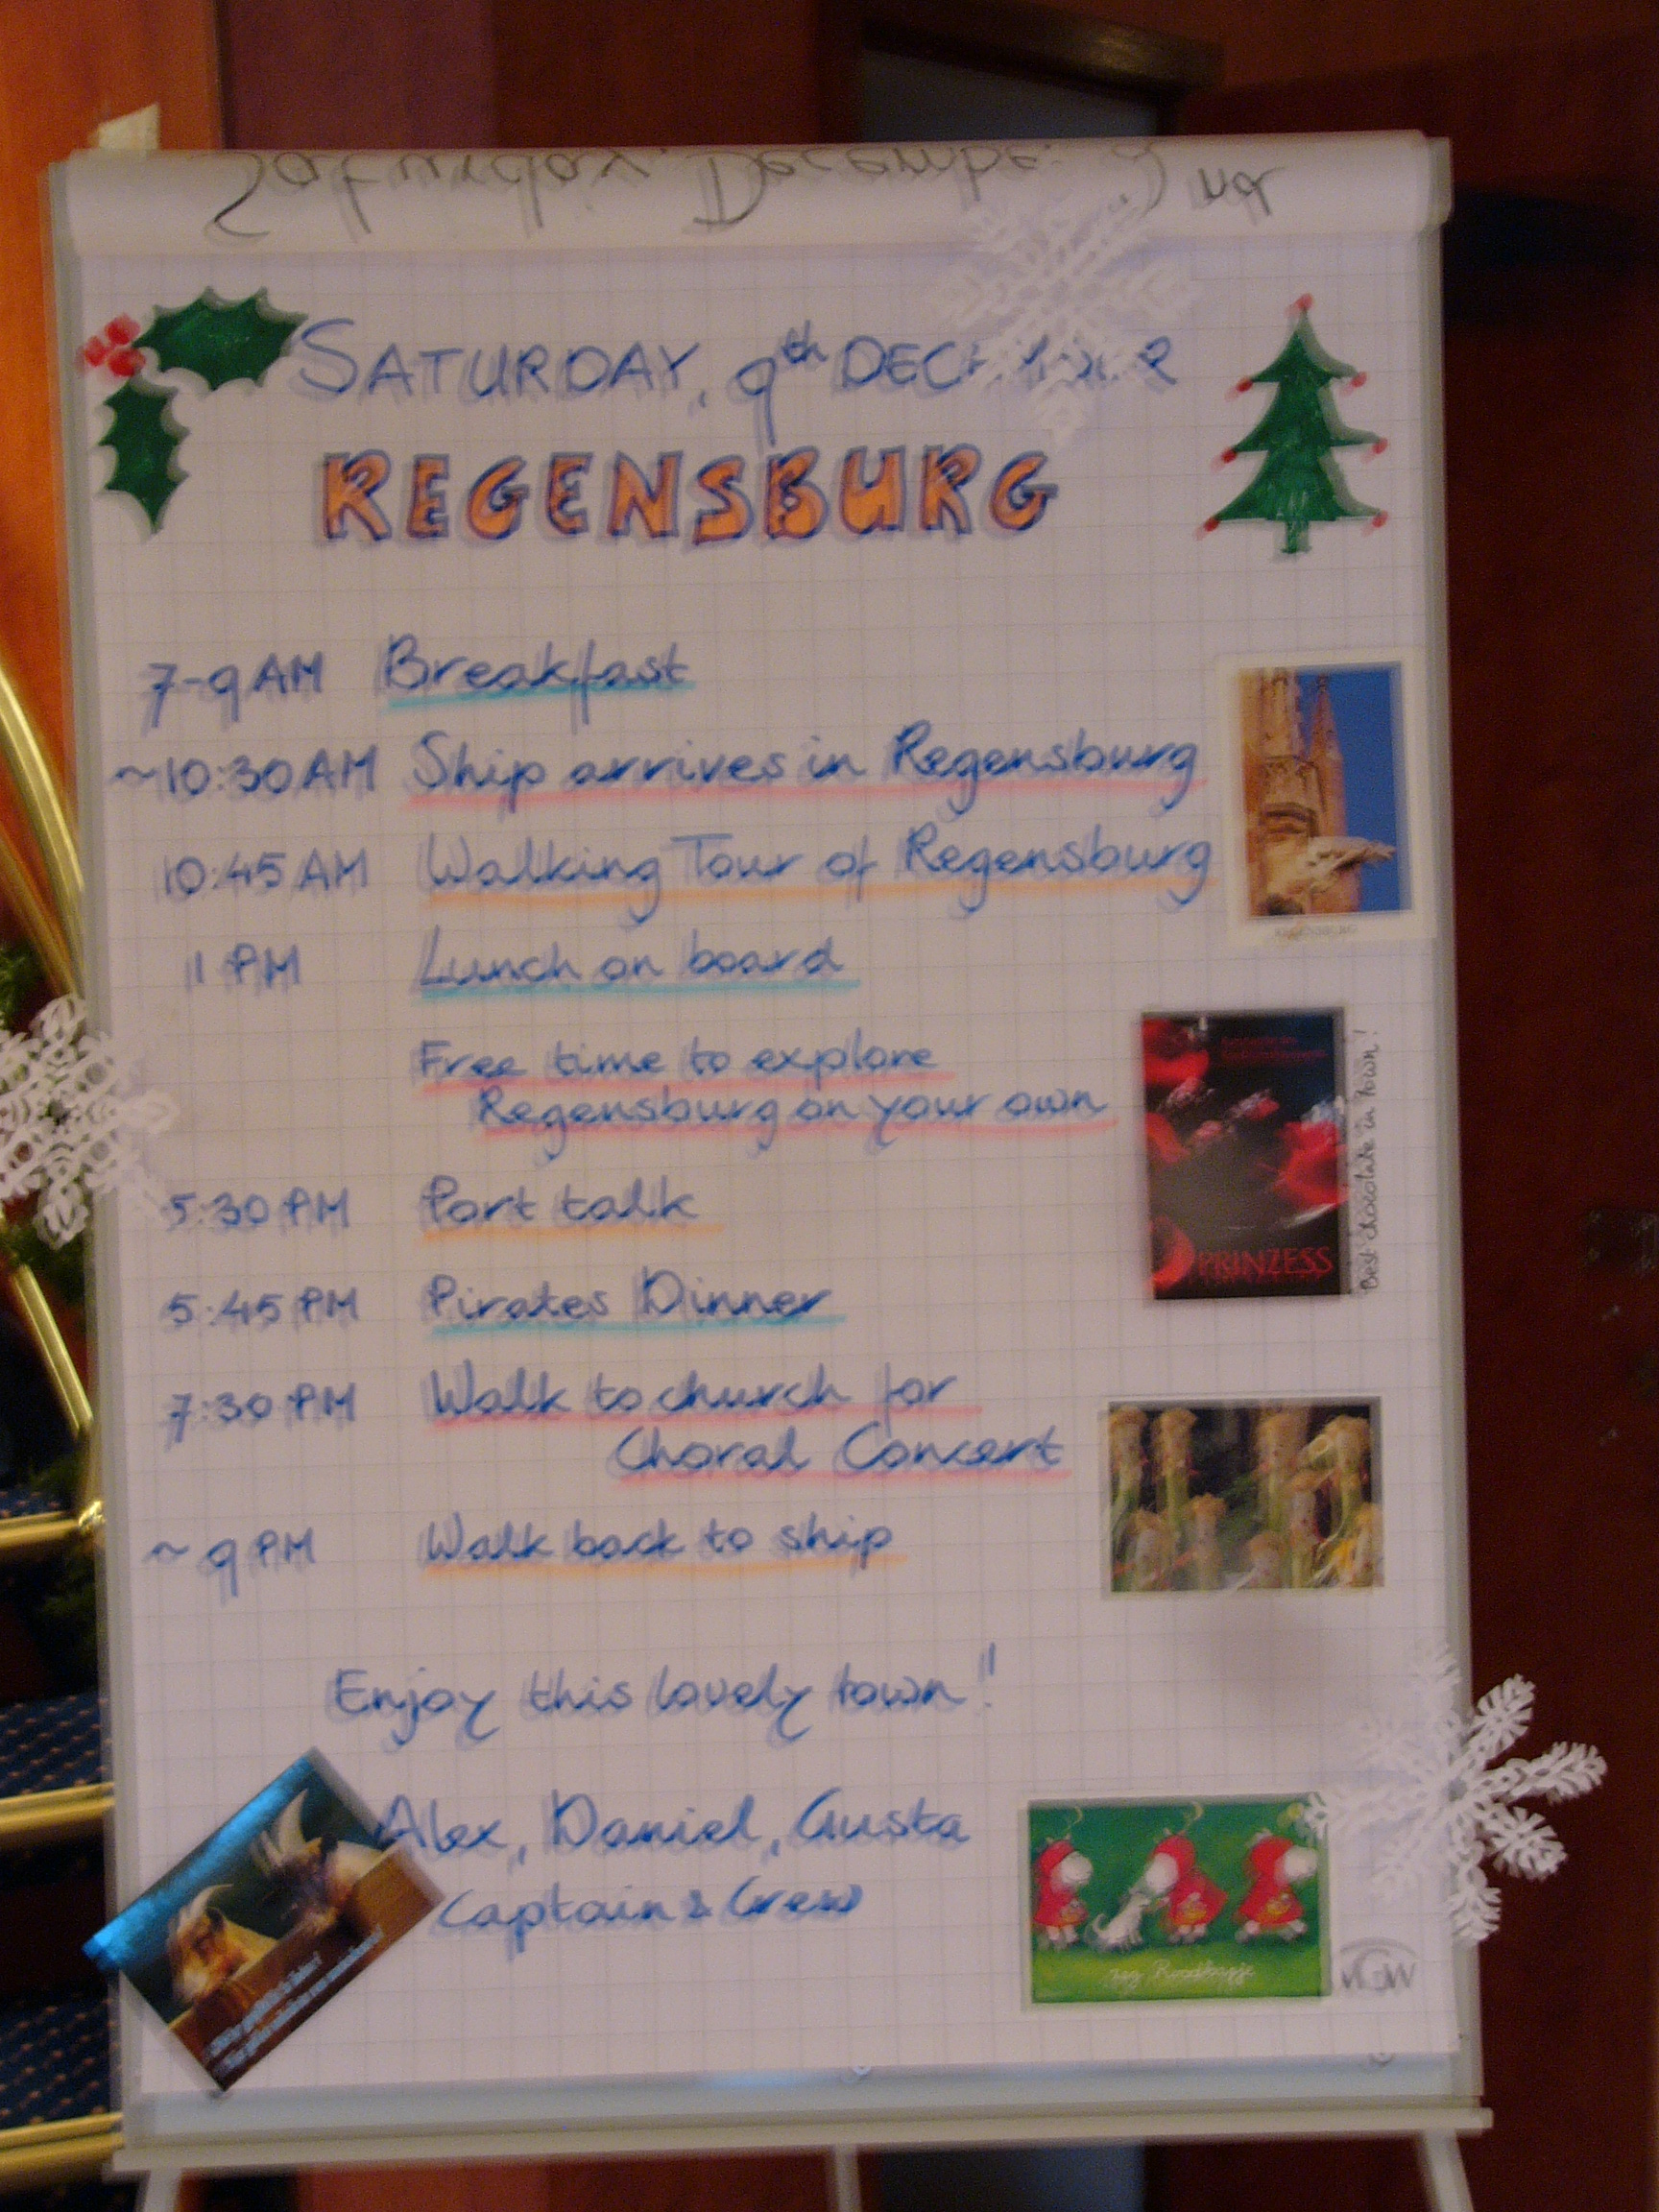 Saturday, December 2nd
SATURDAY, 9th DECEMBER
REGENSBURG
7-9 AM Breakfast
~10:30 AM Ship arrives in Regensburg
10:45 AM Walking Tour of Regensburg
1 PM Lunch on board
Free time to explore
Regensburg on your own
5:30 PM Port talk
5:45 PM Pirates Dinner
7:30 PM Walk to church for
Choral Concert
~ 9 PM Walk back to ship
Enjoy this lovely town!!
Alex, Daniel, Gusta
Captain & Crew
REGENSBURG
PRINZESS
Best chocolate in town!
zeg Roodkapje